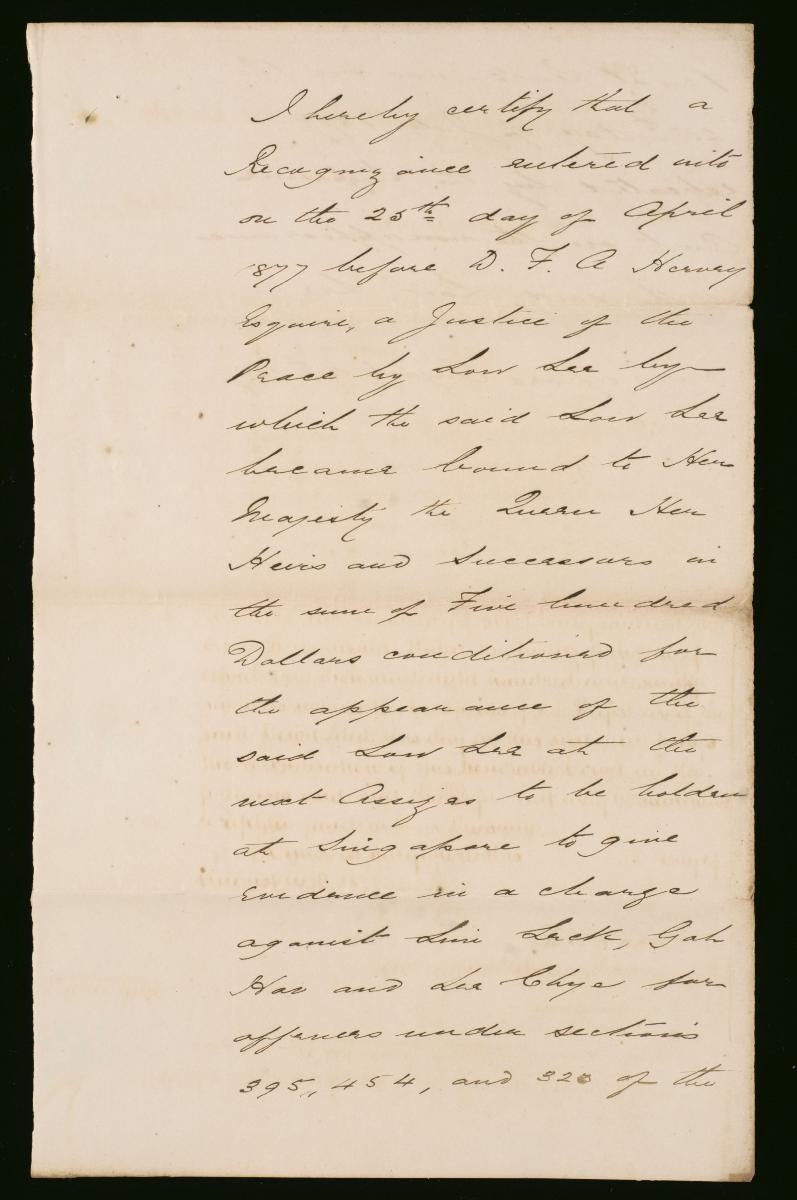 I hereby certify that a
Recognizance entered into
on the 25th day of April
1877 before D. F. A Hervey
Esquire, a Justice of the
Peace by Low Lee by
which the said Low Lee
became bound to Her
Majesty the Queen Her
Heirs and Successors in
the sum of Five hundred
Dollars conditioned for
the appearance of the
said Low Lee at the
next Assizes to be holden
at Singapore to give
evidence in a charge
against Lim Leck, Goh
Hoo and Lee Chye for
offences under sections
395,, 454, and 323 of the